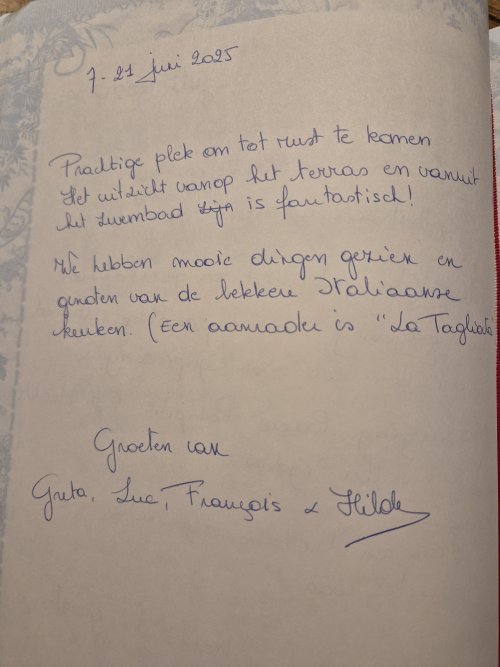 7-21 juni 2025
Prachtige plek om tot rust te komen
Het uitzicht vanop het terras en vanuit
het zwembad zijn is fantastisch!
We hebben mooie dingen gezien en
genoten van de lekkere Italiaanse
keuken. (Een aanrader is "La Tagliata
Groeten van
Greta, Luc, François & Hilde